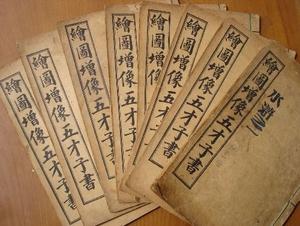 水滸
繪圖增像五才子書
繪圖增像五才子書
繪圖增像五才子書
繪圖增像五才子書
繪圖增像五才子書
繪圖增像五才子書
繪圖增像五才子書